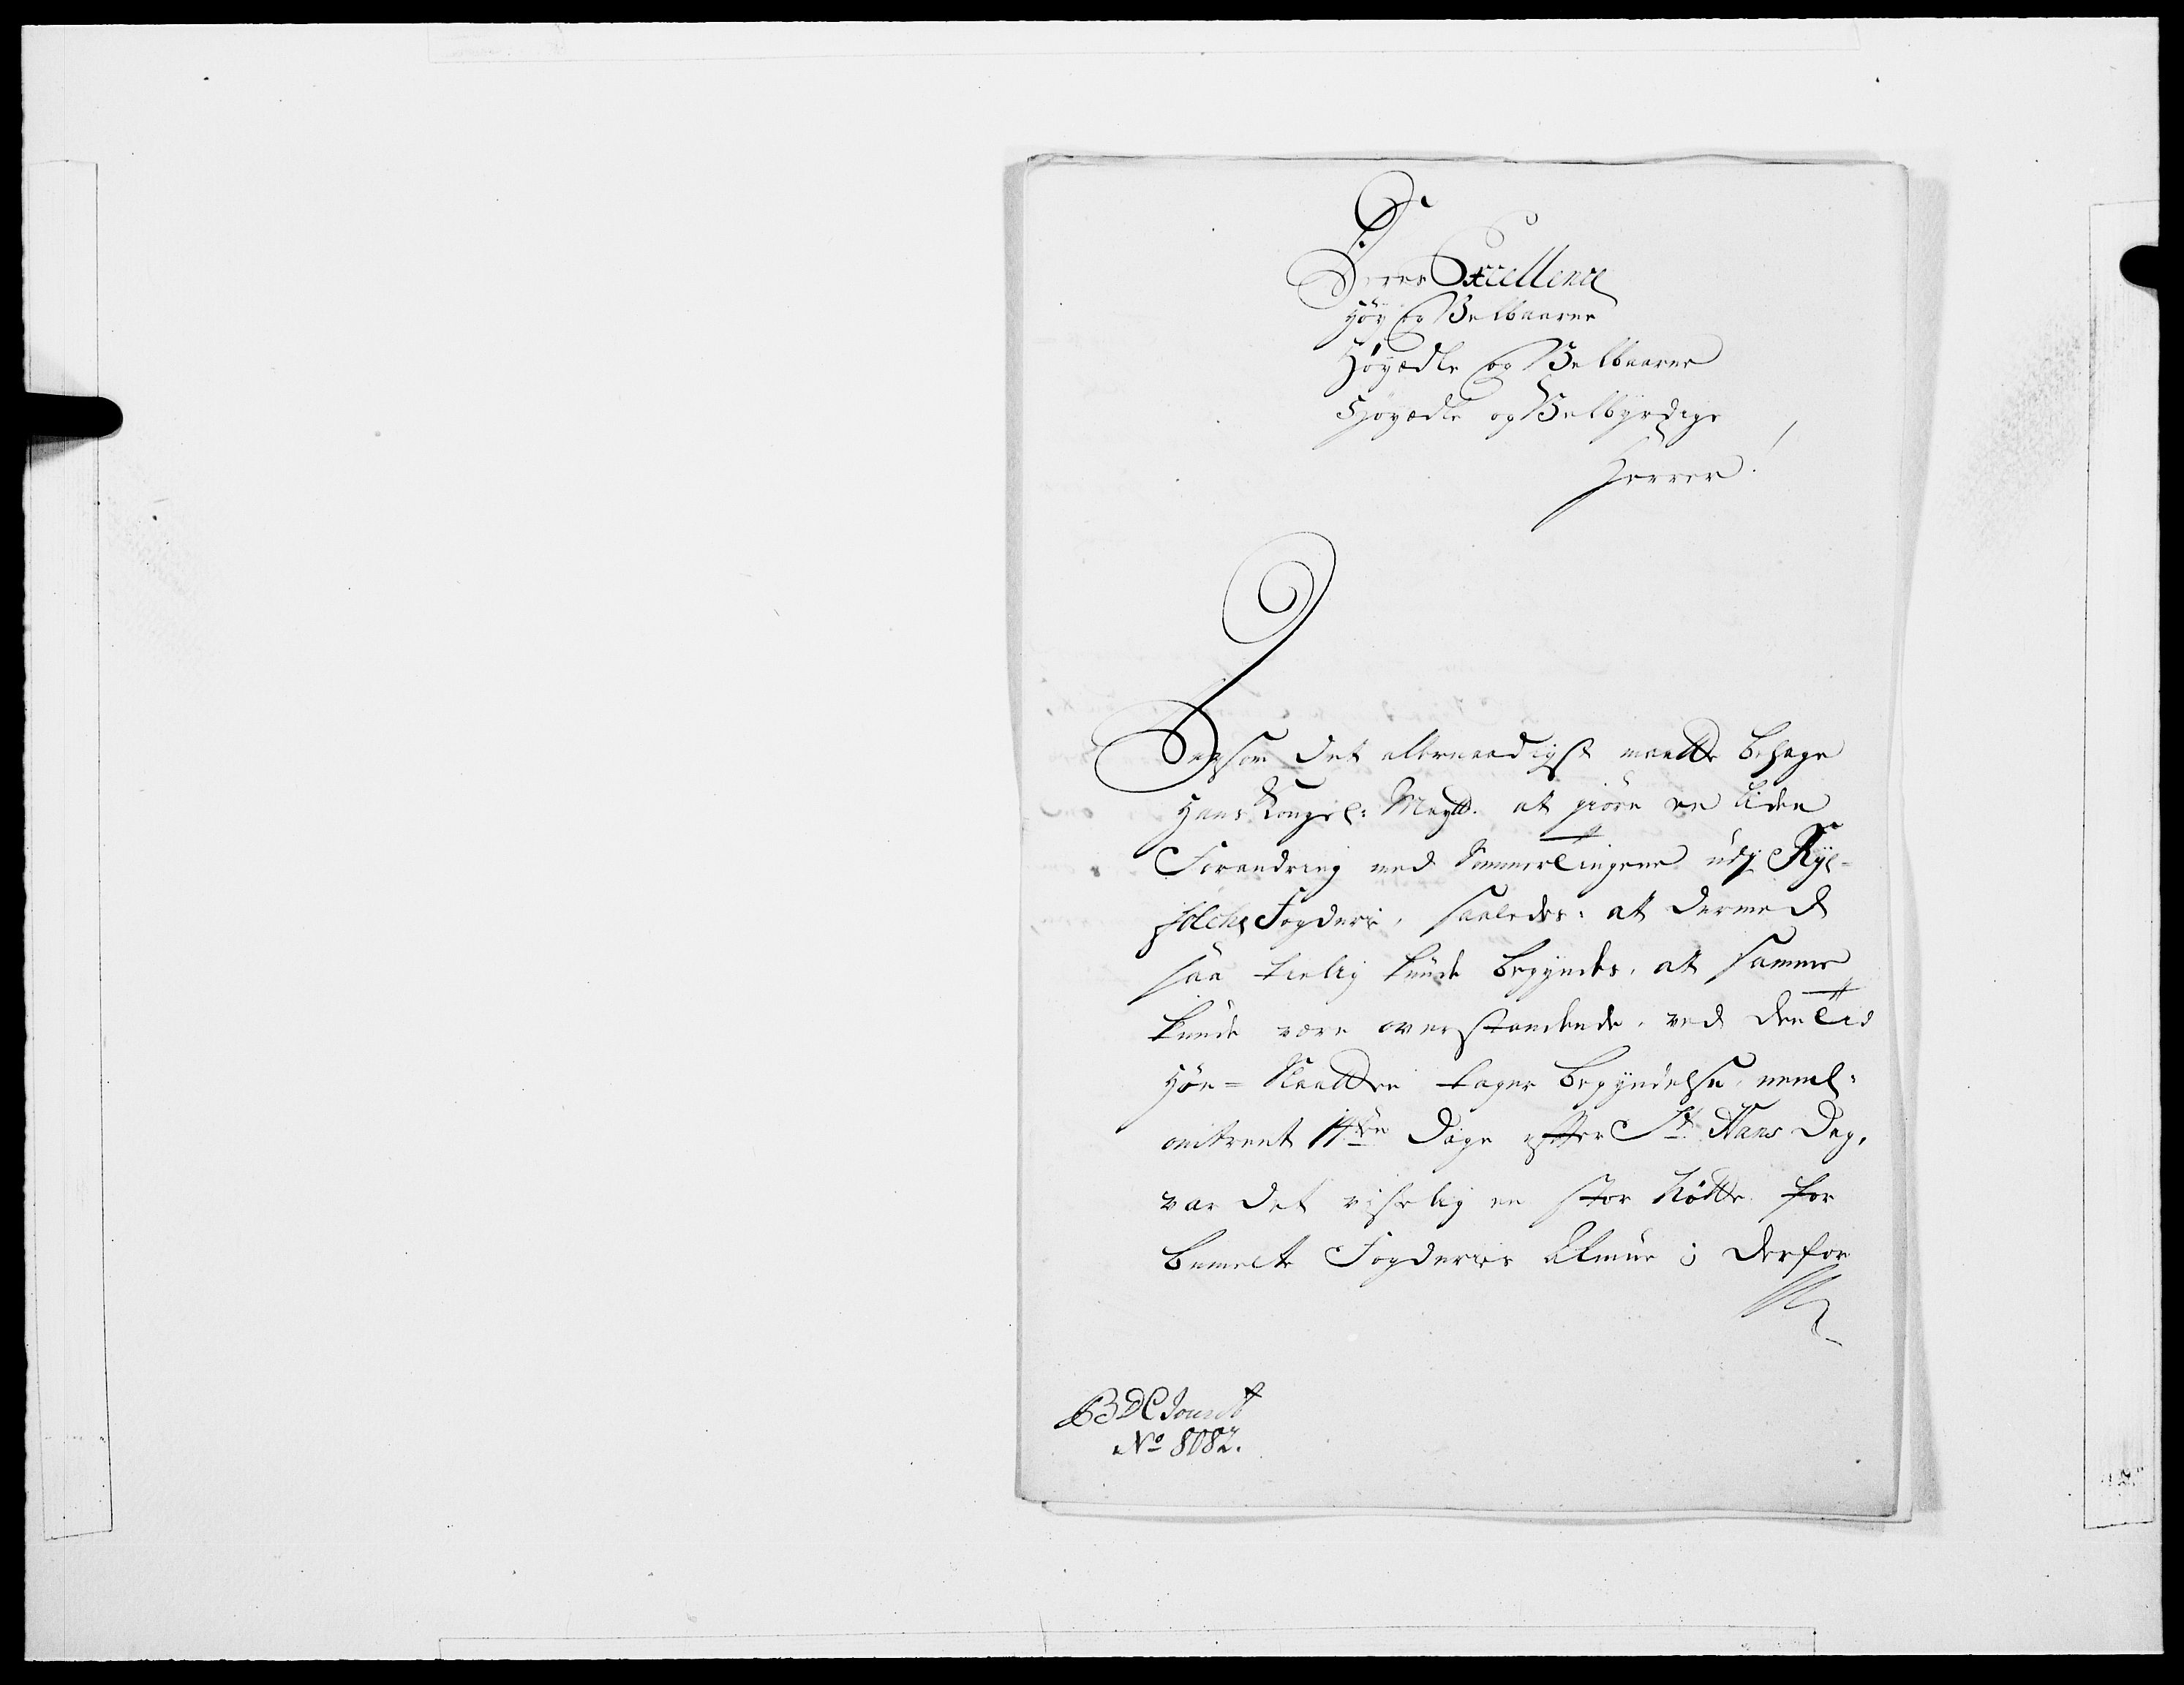 Deres Excellence
Høy og Velbaarne
Høyædle og Velbaarne
Høyædle og Velbyrdige
Herrer!
Dersom det allernaadigst maatte behage
Hans Kongel: Mayt. at giöre en liden
Forandring med Sommertingene udj Ryf-
folche Fogderie, saaledes: at dermed
saa tielig kunde begyndes, at samme
kunde være overstandende, ved den tid
Høe-Slaatten tager begyndelse, neml:
omtrent 14ten Dage efter St. Hans Dag,
var det visselig en stor Nötte for
bemelte Fogderies Almue; derfor
No 8082.